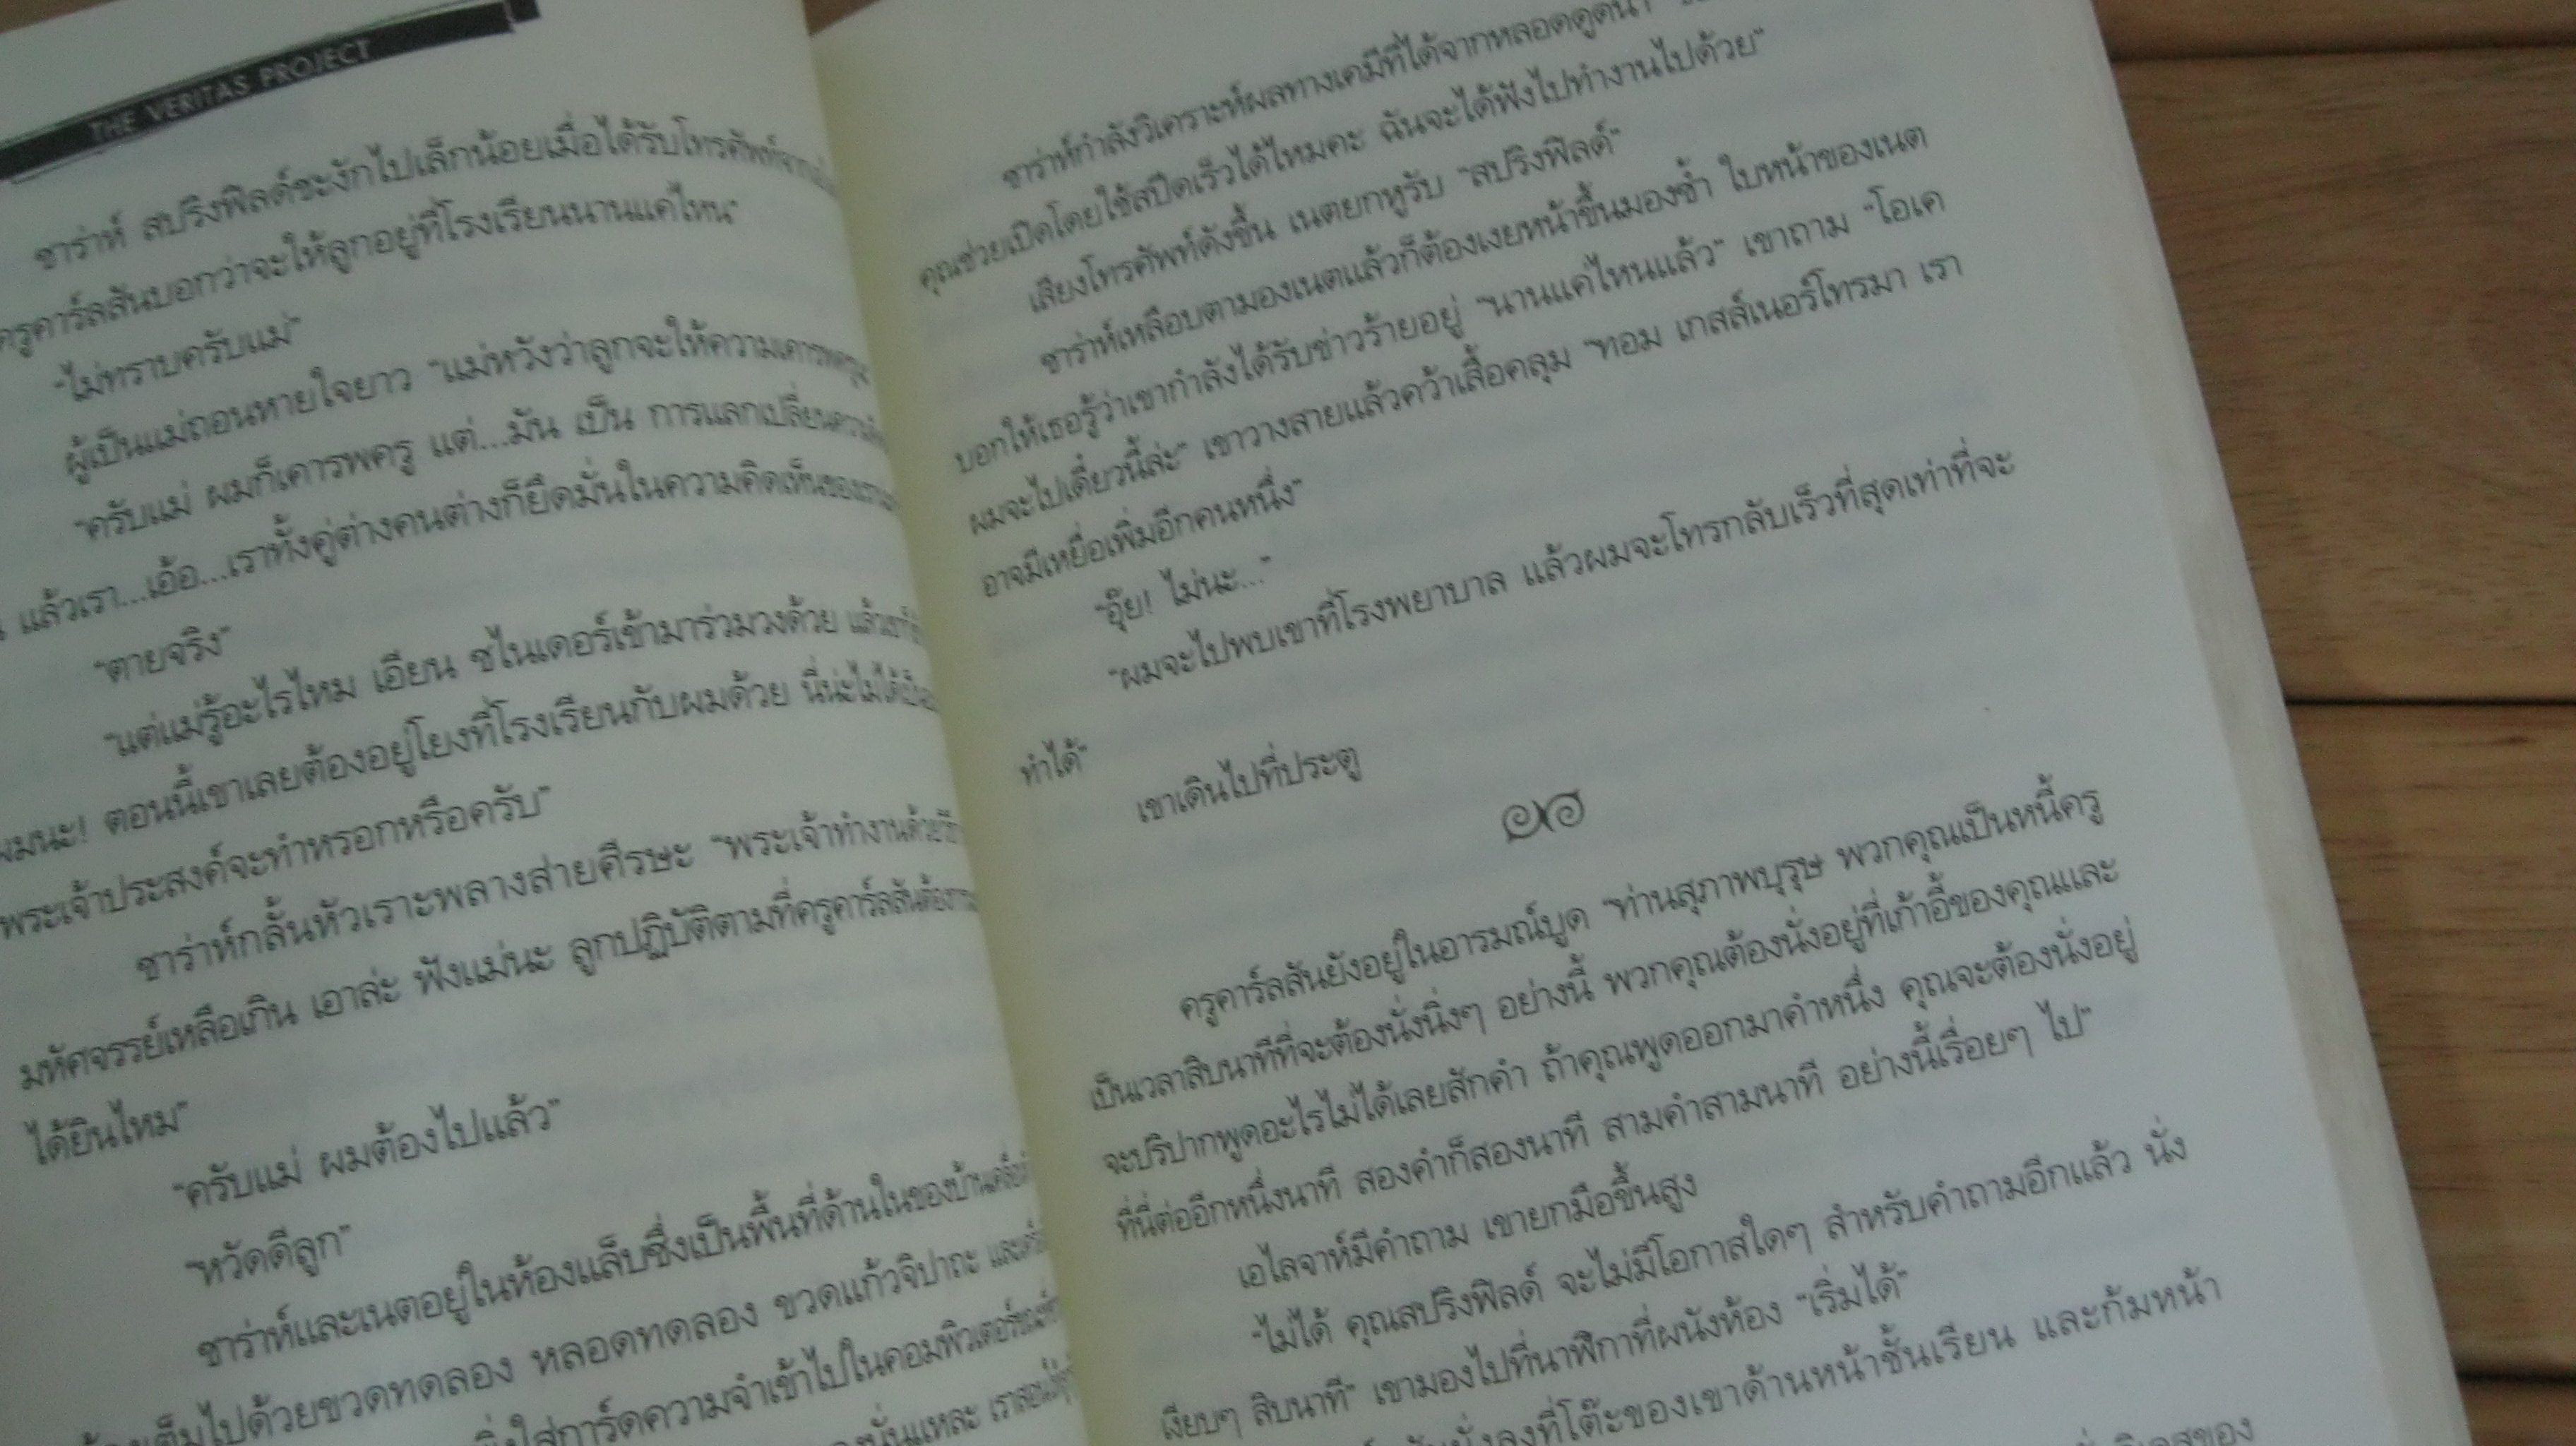 THE VERITAS PROJECT
ซาร่าห์ สปริงฟิลด์ชะงักไปเล็กน้อยเมื่อได้รับโทรศัพท์
ครูคาร์ลสันบอกว่าจะให้ลูกอยู่ที่โรงเรียนนานแค่ไหน"
"ไม่ทราบครับแม่"
ผู้เป็นแม่ถอนหายใจยาว "แม่หวังว่าลูกจะให้ความเคารพครู
"ครับแม่ ผมก็เคารพครู แต่...มัน เป็น การแลกเปลี่ยน
แล้วเรา...เอ้อ...เราทั้งคู่ต่างคนต่างก็ยึดมั่นในความคิดเห็นของ
"ตายจริง"
"แต่แม่รู้อะไรไหม เอียน ชไนเดอร์เข้ามาร่วมวงด้วย
ผมนะ! ตอนนี้เขาเลยต้องอยู่โยงที่โรงเรียนกับผมด้วย นี่น่ะไม่ได้
พระเจ้าประสงค์จะทำหรอกหรือครับ"
ซาร่าห์กลั้นหัวเราะพลางส่ายศีรษะ "พระเจ้าทำงานด้วย
มหัศจรรย์เหลือเกิน เอาล่ะ ฟังแม่นะ ลูกปฏิบัติตามที่ครูคาร์ลสันต้องการ
ได้ยินไหม"
"ครับแม่ ผมต้องไปแล้ว"
"หวัดดีลูก"
ซาร่าห์และเนตอยู่ในห้องแล็บซึ่งเป็นพื้นที่ด้านในของบ้าน
เต็มไปด้วยขวดทดลอง หลอดทดลอง ขวดแก้วจิปาถะ
ใส่การ์ดความจำเข้าไปในคอมพิวเตอร์
นั่นแหละ
ซาร่าห์กำลังวิเคราะห์ผลทางเคมีที่ได้จากหลอดดูดน้ำ
คุณช่วยเปิดโดยใช้สปีดเร็วได้ไหมคะ ฉันจะได้ฟังไปทำงานไปด้วย"
เสียงโทรศัพท์ดังขึ้น เนตยกหูรับ "สปริงฟิลด์"
ซาร่าห์เหลือบตามองเนตแล้วก็ต้องเงยหน้าขึ้นมองซ้ำ ใบหน้าของเนต
บอกให้เธอรู้ว่าเขากำลังได้รับข่าวร้ายอยู่ "นานแค่ไหนแล้ว" เขาถาม "โอเค
ผมจะไปเดี๋ยวนี้ล่ะ" เขาวางสายแล้วคว้าเสื้อคลุม "ทอม เกสส์เนอร์โทรมา เรา
อาจมีเหยื่อเพิ่มอีกคนหนึ่ง"
"อุ๊ย! ไม่นะ..."
"ผมจะไปพบเขาที่โรงพยาบาล แล้วผมจะโทรกลับเร็วที่สุดเท่าที่จะ
ทำได้"
เขาเดินไปที่ประตู
ครูคาร์ลสันยังอยู่ในอารมณ์บูด "ท่านสุภาพบุรุษ พวกคุณเป็นหนี้ครู
เป็นเวลาสิบนาทีที่จะต้องนั่งนิ่งๆ อย่างนี้ พวกคุณต้องนั่งอยู่ที่เก้าอี้ของคุณและ
จะปริปากพูดอะไรไม่ได้เลยสักคำ ถ้าคุณพูดออกมาคำหนึ่ง คุณจะต้องนั่งอยู่
ที่นี่ต่ออีกหนึ่งนาที สองคำก็สองนาที สามคำสามนาที อย่างนี้เรื่อยๆ ไป"
เอไลจาห์มีคำถาม เขายกมือขึ้นสูง
"ไม่ได้ คุณสปริงฟิลด์ จะไม่มีโอกาสใดๆ สำหรับคำถามอีกแล้ว นั่ง
เงียบๆ สิบนาที" เขามองไปที่นาฬิกาที่ผนังห้อง "เริ่มได้"
นั่งลงที่โต๊ะของเขาด้านหน้าชั้นเรียน และก้มหน้า